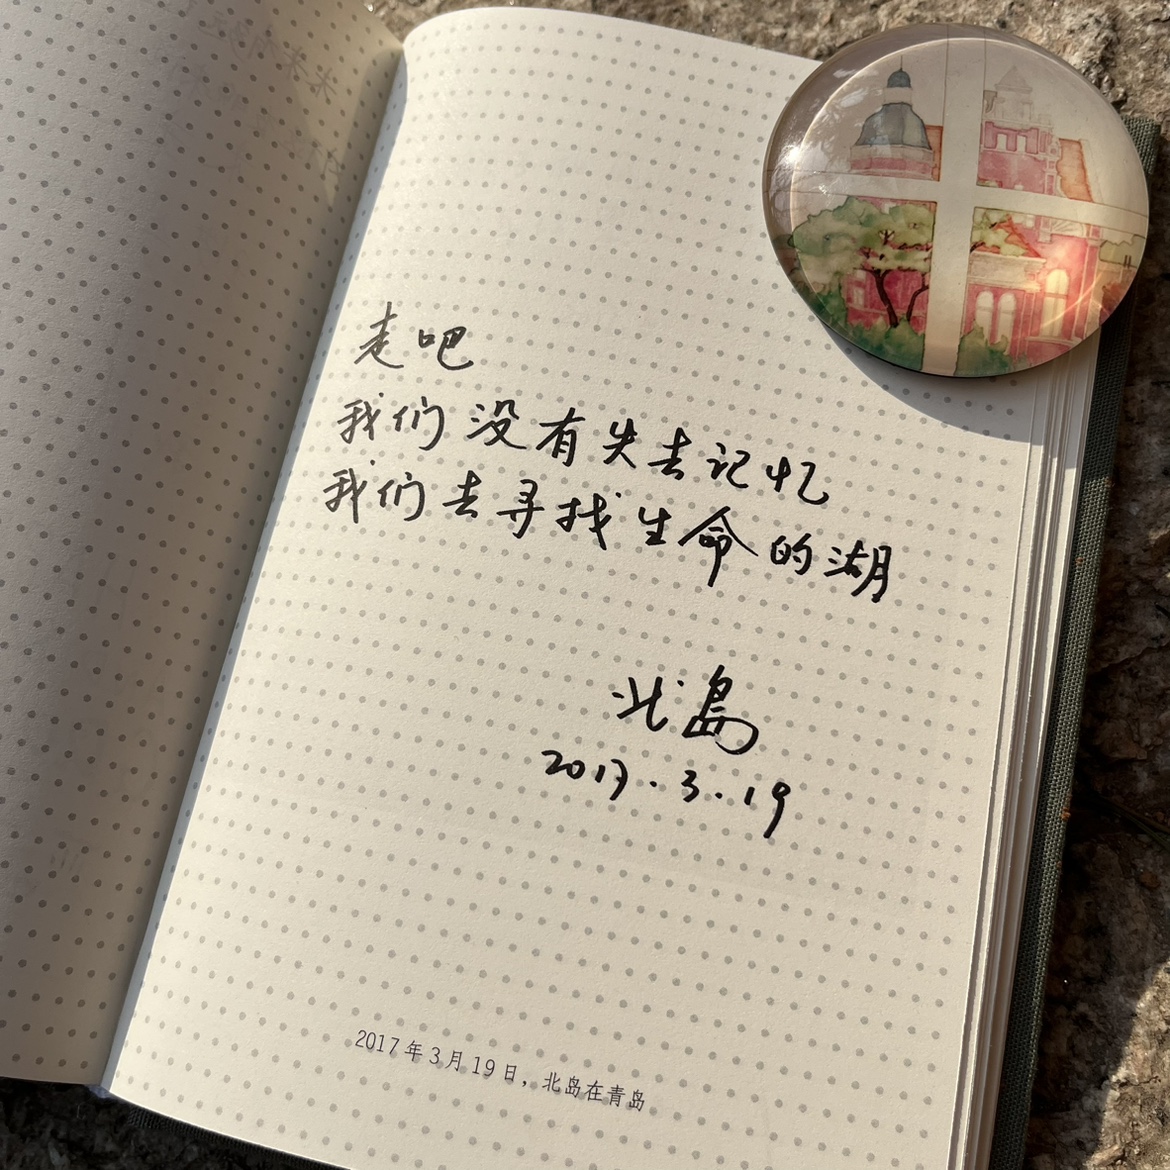 走吧
我们没有失去记忆
我们去寻找生命的湖
北岛
2017.3.19
2017年3月19日，北岛在青岛